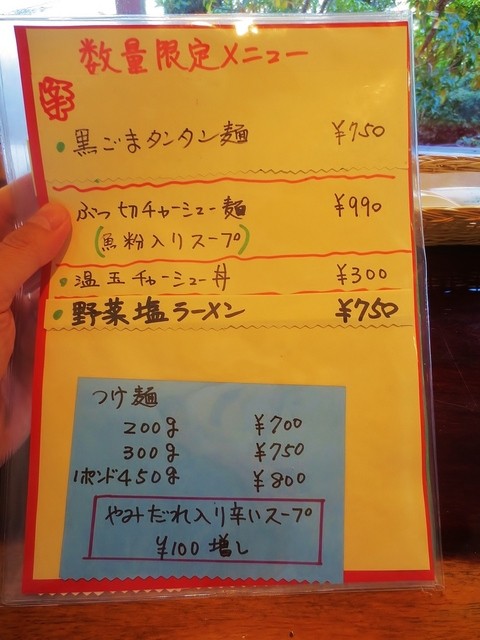 数量限定メニュー
黒ごまタンタン麺 ¥750
ぶつ切チャーシュー麺 ¥990
(魚粉入りスープ)
温玉チャーシュー丼 ¥300
野菜塩ラーメン ¥750
つけ麺
200g ¥700
300g ¥750
1ポンド450g ¥800
やみだれ入り辛いスープ
¥100増し